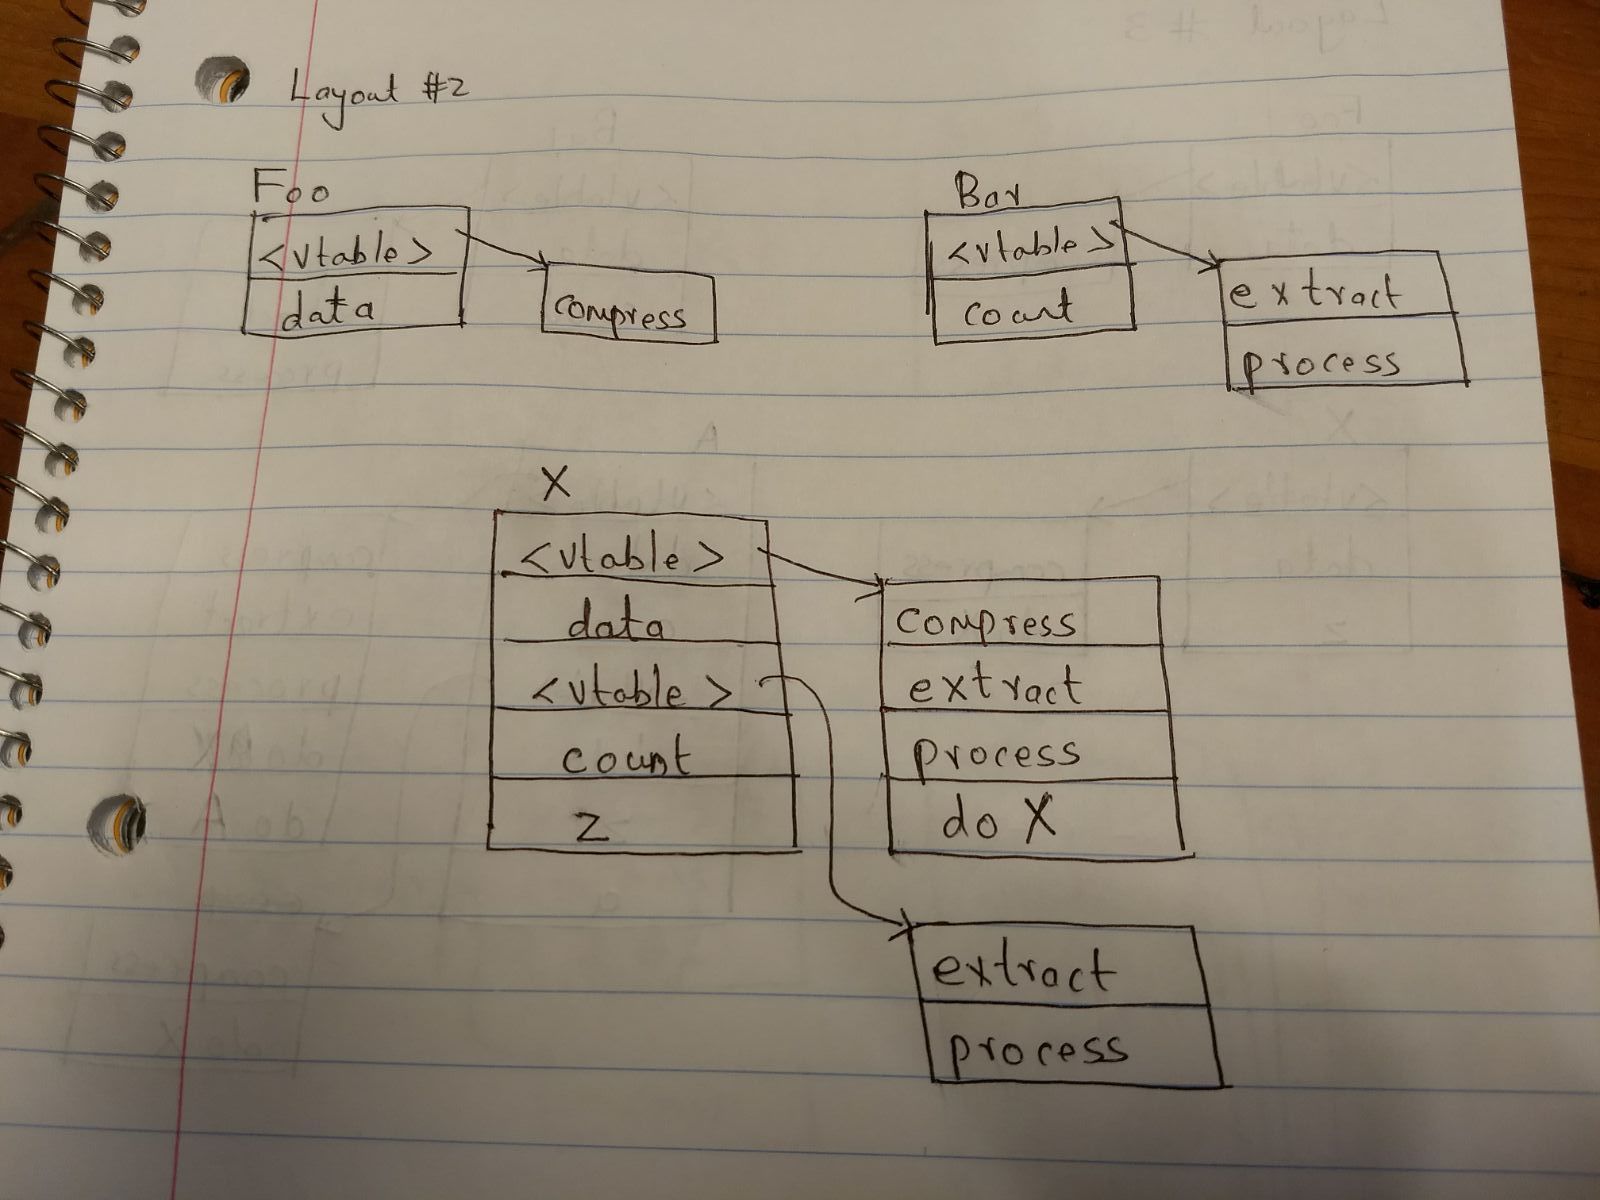 Layout #2
Foo
<vtable>
data
compress
Bar
<vtable>
count
extract
process
X
<vtable>
data
<vtable>
count
z
compress
extract
process
do X
extract
process